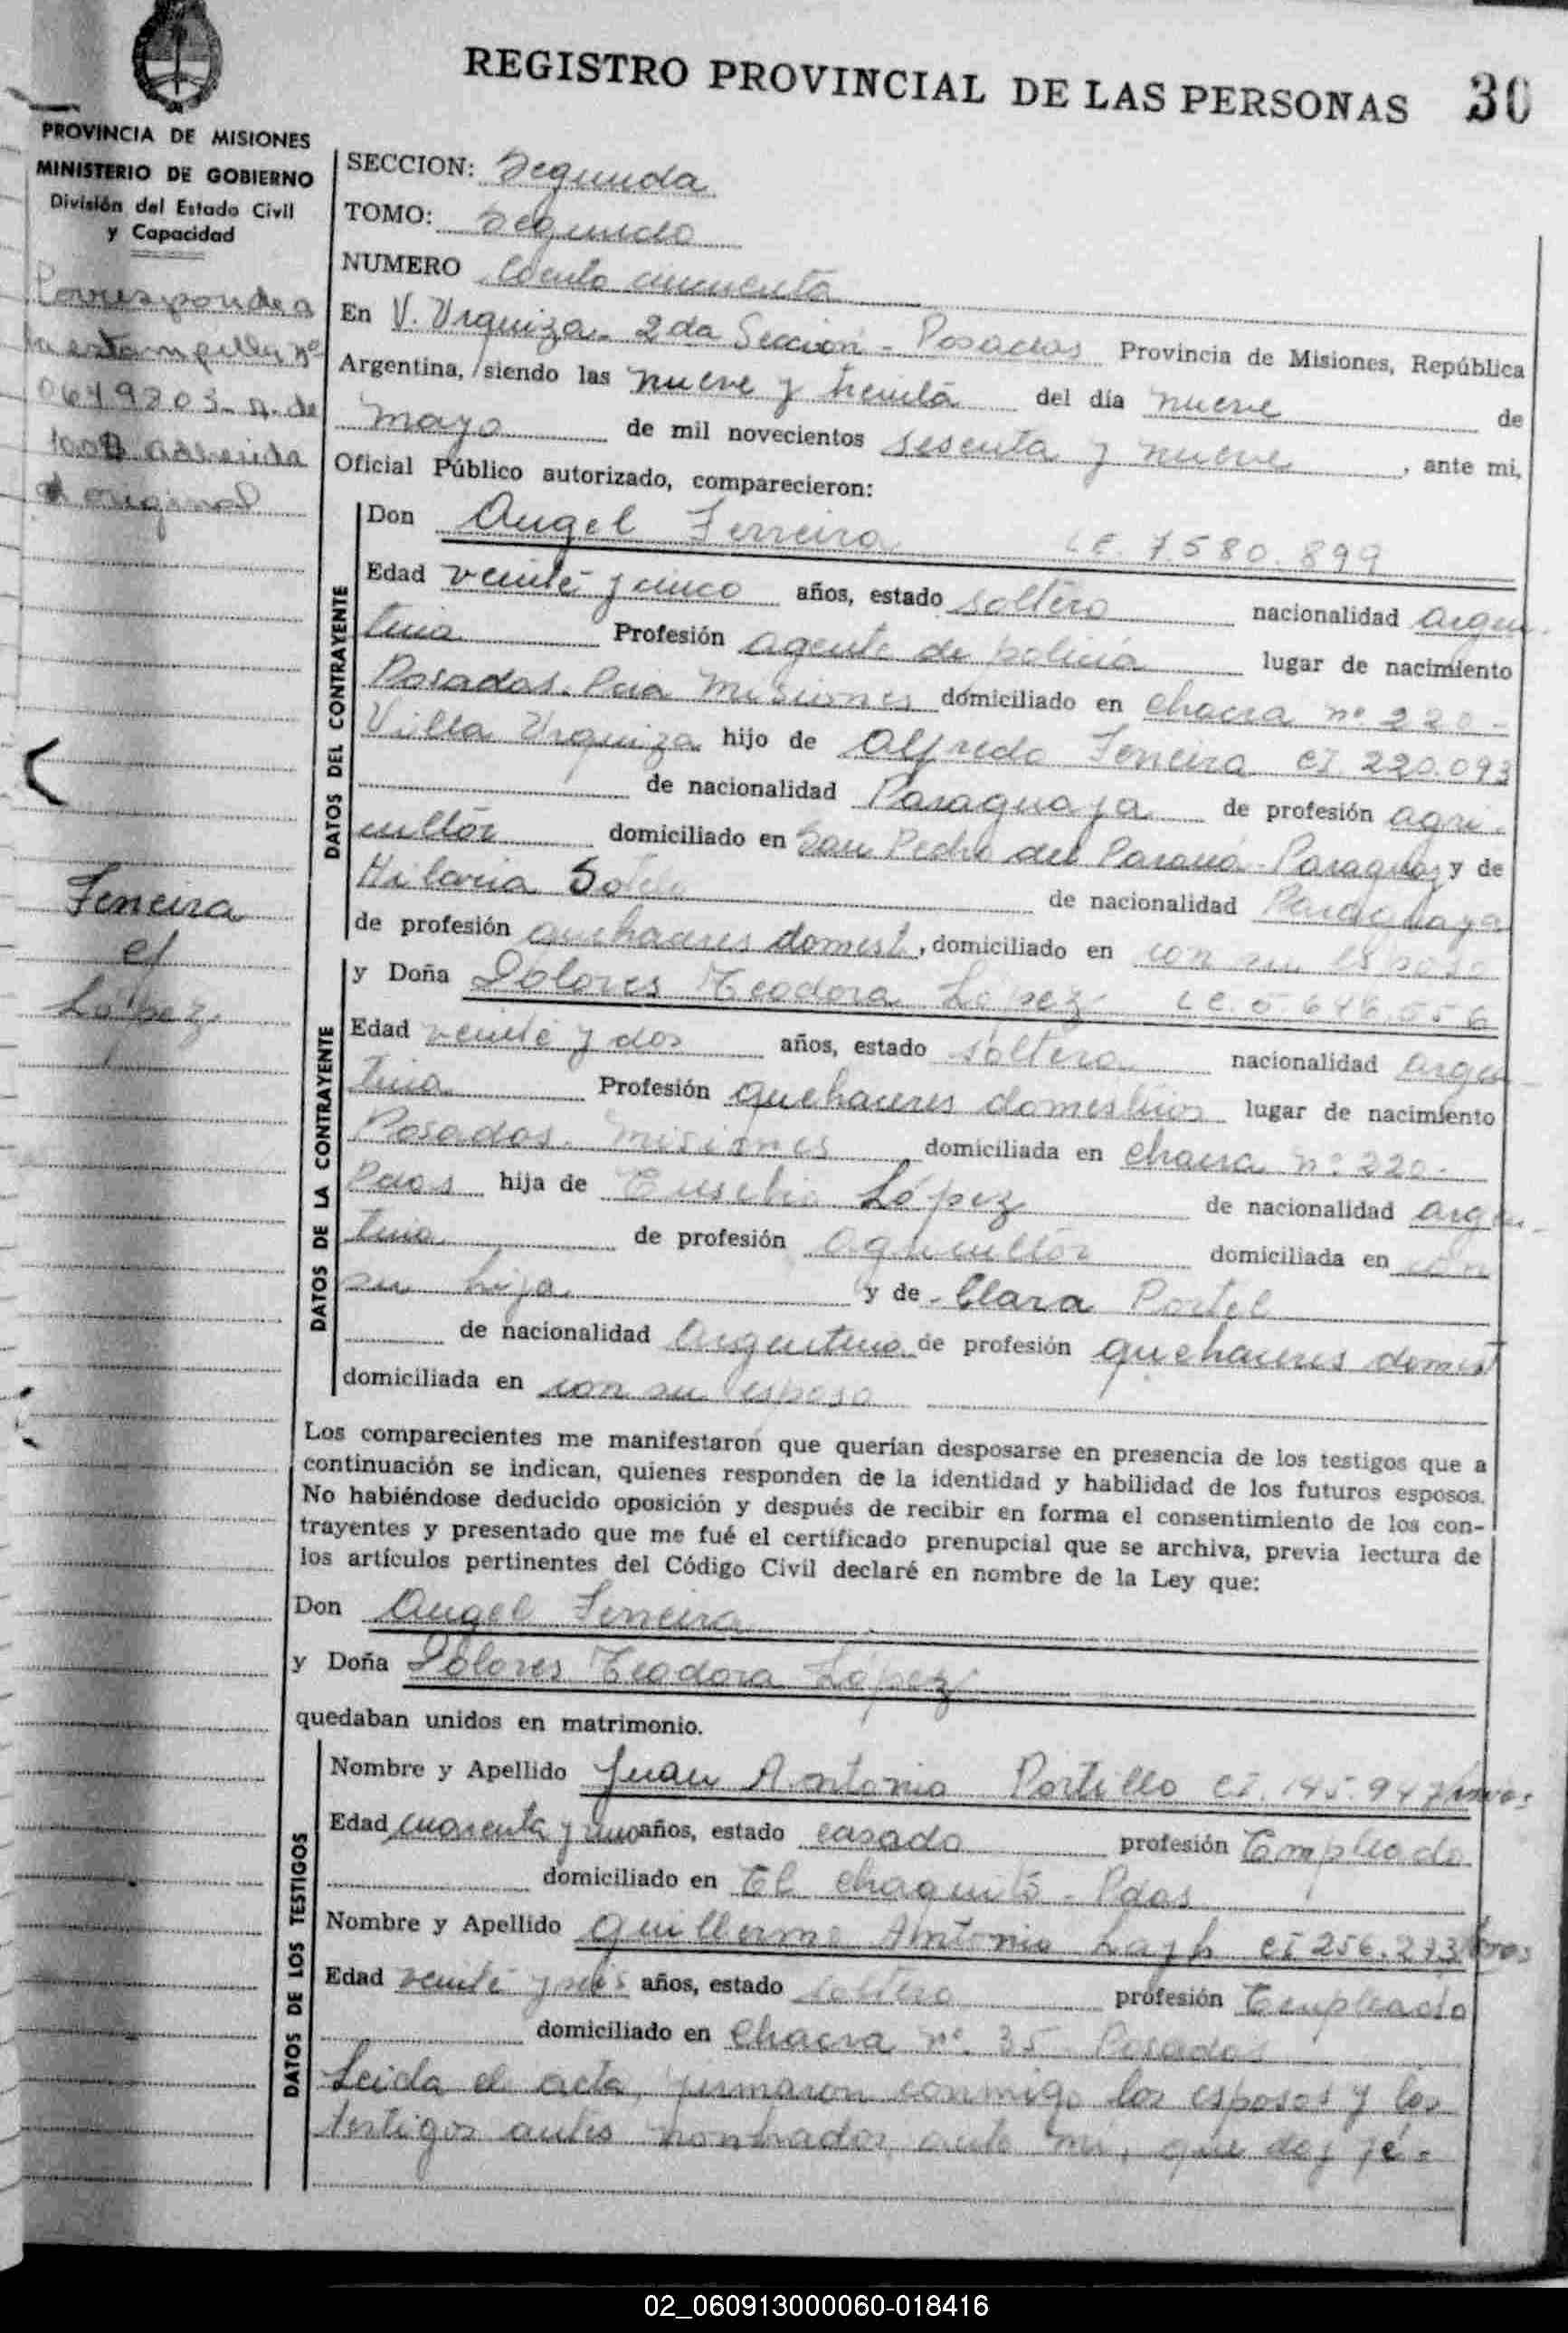 REGISTRO PROVINCIAL DE LAS PERSONAS 30
PROVINCIA DE MISIONES
MINISTERIO DE GOBIERNO
División del Estado Civil
y Capacidad
Corresponde a
la estampilla nº
adherida
original
Ferreira
c/
López
SECCION: Segunda
TOMO: Segundo
NUMERO Ciento cincuenta
En V. Urquiza - 2da Sección - Posadas Provincia de Misiones, República
Argentina, siendo las nueve y treinta del día nueve de
mayo de mil novecientos sesenta y nueve, ante mi,
Oficial Público autorizado, comparecieron:
DATOS DEL CONTRAYENTE
Don Angel Ferreira LE. 7.580.899
Edad veinte y cinco años, estado soltero nacionalidad argen-
tina Profesión agente de policia lugar de nacimiento
Posadas. Pcia Misiones domiciliado en chacra nº 220 -
Villa Urquiza hijo de Alfredo Ferreira CI. 220.093
de nacionalidad Paraguaya de profesión agri-
cultor domiciliado en San Pedro del Paraná - Paraguay y de
Hilaria Sotelo de nacionalidad Paraguaya
de profesión quehaceres domest, domiciliado en con su esposo
DATOS DE LA CONTRAYENTE
y Doña Dolores Teodora López LC. 5.646.556
Edad veinte y dos años, estado soltera nacionalidad argen-
tina Profesión quehaceres domesticos lugar de nacimiento
Posadas. Misiones domiciliada en chacra nº 220 -
Pdas hija de Eusebio López de nacionalidad argen-
tina de profesión agricultor domiciliada en con
su hija y de - Clara Portel
de nacionalidad argentina de profesión quehaceres domest
domiciliada en con su esposo
Los comparecientes me manifestaron que querían desposarse en presencia de los testigos que a
continuación se indican, quienes responden de la identidad y habilidad de los futuros esposos.
No habiéndose deducido oposición y después de recibir en forma el consentimiento de los con-
trayentes y presentado que me fué el certificado prenupcial que se archiva, previa lectura de
los artículos pertinentes del Código Civil declaré en nombre de la Ley que:
Don Angel Ferreira
y Doña Dolores Teodora López
quedaban unidos en matrimonio.
DATOS DE LOS TESTIGOS
Nombre y Apellido Juan Antonio Portillo CI. 145.947
Edad cuarenta y uno años, estado casado profesión Empleado
domiciliado en El chaquito - Pdas
Nombre y Apellido Guillermo Antonio CI 256.273
Edad veinte y seis años, estado soltero profesión Empleado
domiciliado en chacra nº 35 Posadas
Leida el acta, firmaron conmigo los esposos y los
testigos antes nombrados, ante mi, que doy fé. -
02_060913000060-018416